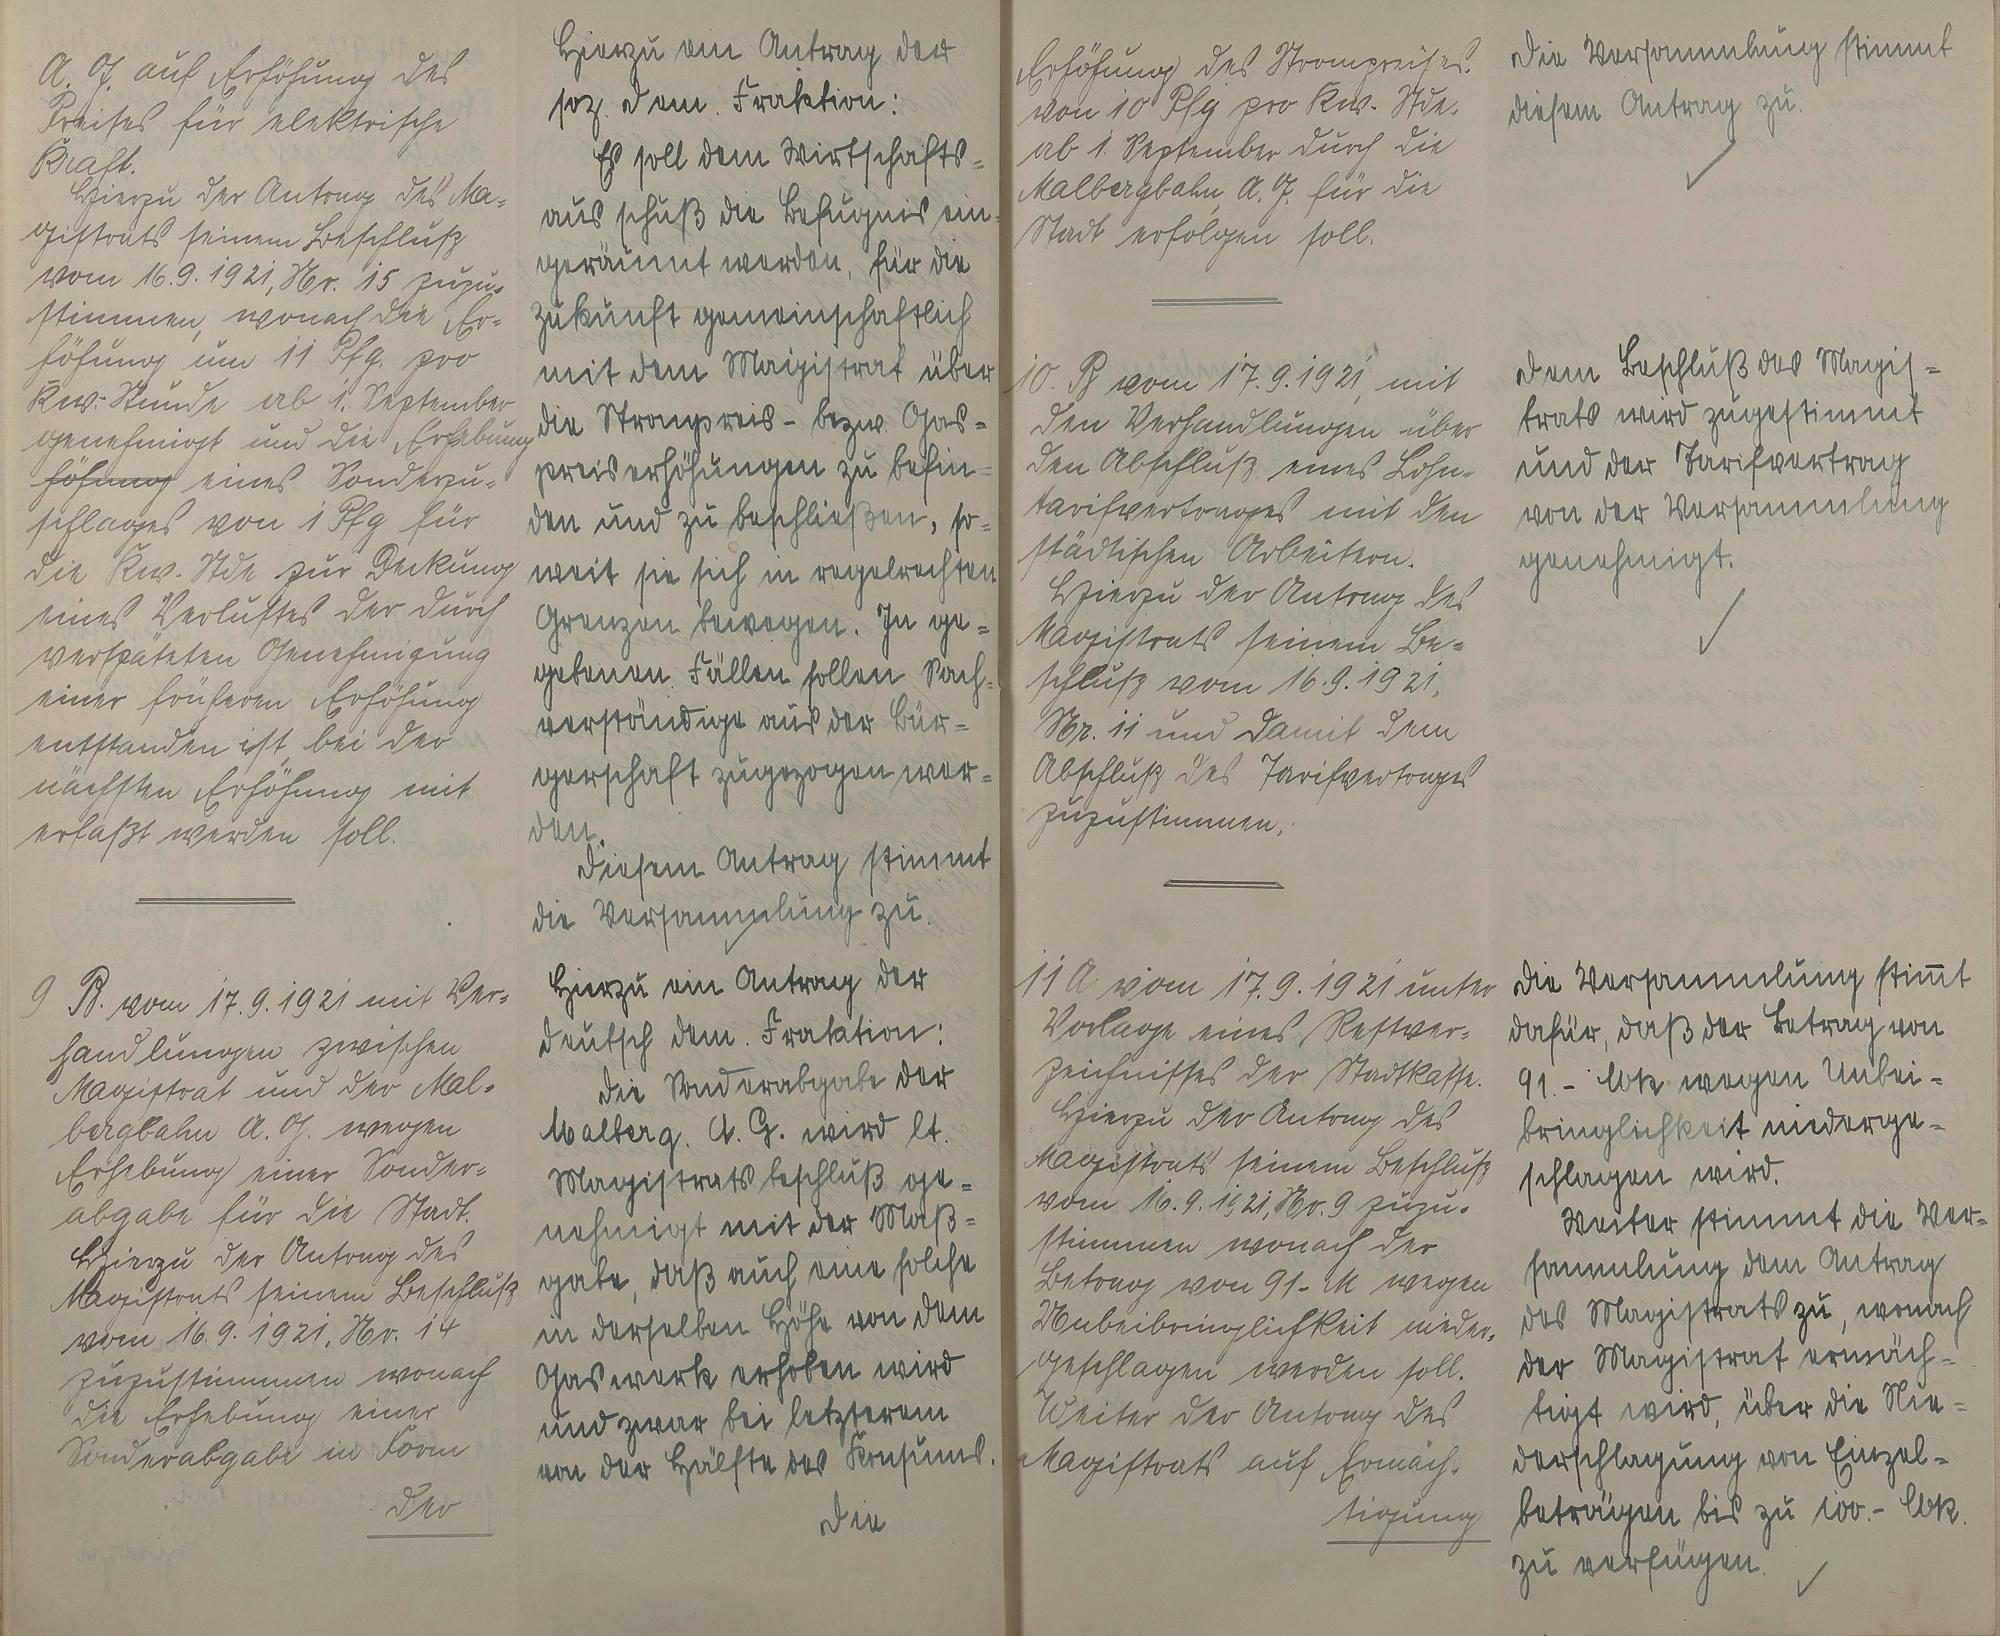 A. G. auf Erhöhung des
Preises für elektrische
Kraft.
Hierzu der Antrag des Ma-
gistrats seinem Beschluß
vom 16.9.1921, Nr. 15 zuzu-
stimmen, wonach die Er-
höhung um 11 Pfg. pro
Kw.-Stunde ab 1. September
genehmigt und die Erhebung
höhung eines Sonderzu-
schlages von 1 Pfg für
die Kw. Stde zur Deckung
eines Verlustes der durch
verspäteten Genehmigung
einer früheren Erhöhung
entstanden ist, bei der
nächsten Erhöhung mit
erfaßt werden soll.
9 B. vom 17.9.1921 mit Ver-
handlungen zwischen
Magistrat und der Mal-
bergbahn A. G. wegen
Erhebung einer Sonder-
abgabe für die Stadt.
Hierzu der Antrag des
Magistrats seinem Beschluß
vom 16.9.1921, Nr. 14
zuzustimmen wonach
die Erhebung einer
Sonderabgabe in Form
der
Hierzu ein Antrag der
soz. dem. Fraktion:
Es soll dem Wirtschafts-
ausschuß die Befugnis ein-
geräumt werden, für die
Zukunft gemeinschaftlich
mit dem Magistrat über
die Strompreis- bezw. Gas-
preiserhöhungen zu befin-
den und zu beschließen, so-
weit sie sich in regelrechten
Grenzen bewegen. In ge-
gebenen Fällen sollen Sach-
verständige aus der Bür-
gerschaft zugezogen wer-
den.
Diesem Antrag stimmt
die Versammlung zu.
Hierzu ein Antrag der
deutsch dem. Fraktion:
Die Sonderabgabe der
Malberg. A. G. wird lt.
Magistratsbeschluß ge-
nehmigt mit der Maß-
gabe, daß auch eine solche
in derselben Höhe von dem
Gaswerk erhoben wird
und zwar bei letzterem
von der Hälfte des Konsums.
Die
Erhöhung des Strompreises
von 10 Pfg pro Kw. Stde.
ab 1. September durch die
Malbergbahn A. G. für die
Stadt erfolgen soll.
10. B vom 17.9.1921, mit
den Verhandlungen über
den Abschluß eines Lohn-
tarifvertrages mit den
städtischen Arbeitern.
Hierzu der Antrag des
Magistrats seinem Be-
schluß vom 16.9.1921,
Nr. 11 und damit dem
Abschluß des Tarifvertrages
zuzustimmen.
11 A vom 17.9.1921 unter
Vorlage eines Restver-
zeichnisses der Stadtkasse.
Hierzu der Antrag des
Magistrats seinem Beschluß
vom 16.9.1921, Nr. 9 zuzu-
stimmen wonach der
Betrag von 91.- M wegen
Unbeibringlichkeit nieder-
geschlagen werden soll.
Weiter der Antrag des
Magistrats auf Ermäch-
tigung
Die Versammlung stimmt
diesem Antrag zu.
Dem Beschluß des Magis-
trats wird zugestimmt
und der Tarifvertrag
von der Versammlung
genehmigt.
Die Versammlung stim̅t
dafür, daß der Betrag von
91.- Mk wegen Unbei-
bringlichkeit niederge-
schlagen wird.
Weiter stimmt die Ver-
sammlung dem Antrag
des Magistrats zu, wonach
der Magistrat ermäch-
tigt wird, über die Nie-
derschlagung von Einzel-
beträgen bis zu 100.- Mk.
zu verfügen.